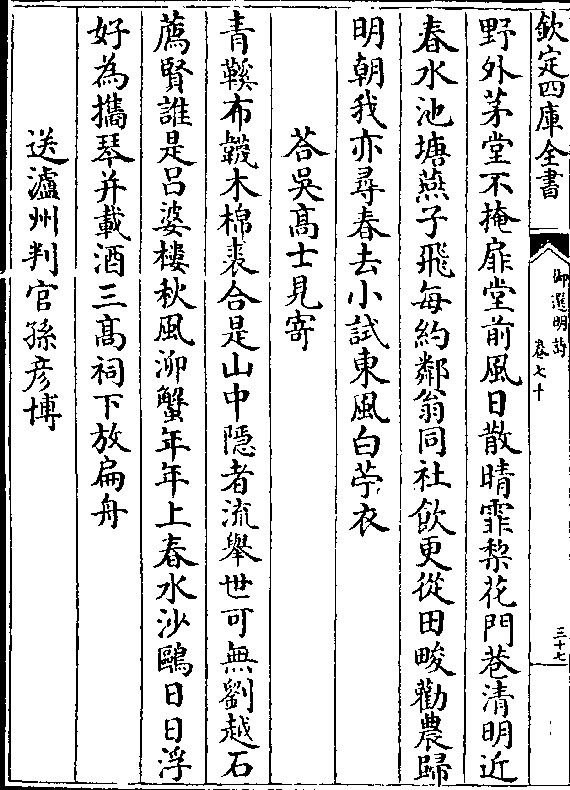 欽定四庫全書
御選明詩
卷七十
三十七
野外茅堂不掩扉堂前風日散晴霏梨花門巷清明近
春水池塘燕子飛每約鄰翁同社飲更從田畯勸農歸
明朝我亦尋春去小試東風白苧衣
荅吳髙士見寄
青鞵布韈木棉裘合是山中隱者流舉世可無劉越石
薦賢誰是吕婆樓秋風泖蟹年年上春水沙鷗日日浮
好為攜琴并載酒三髙祠下放扁舟
送瀘州判官孫彦博